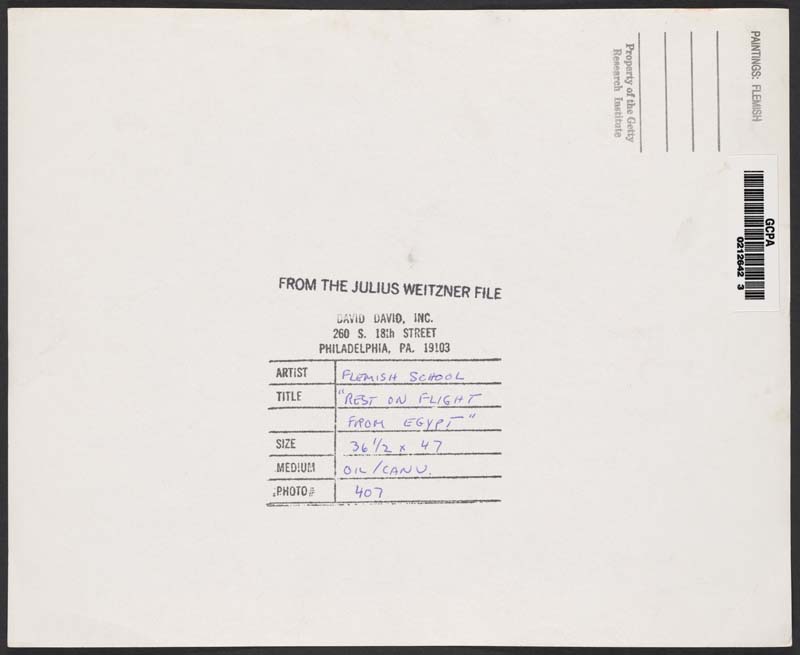 PAINTINGS: FLEMISH
Property of the Getty
Research Institute
GCPA
0212642 3
FROM THE JULIUS WEITZNER FILE
DAVID DAVID, INC.
260 S. 18th STREET
PHILADELPHIA, PA. 19103
ARTIST FLEMISH SCHOOL
TITLE "REST ON FLIGHT
FROM EGYPT"
SIZE 36 1/2 x 47
MEDIUM OIL/CANV.
PHOTO# 407